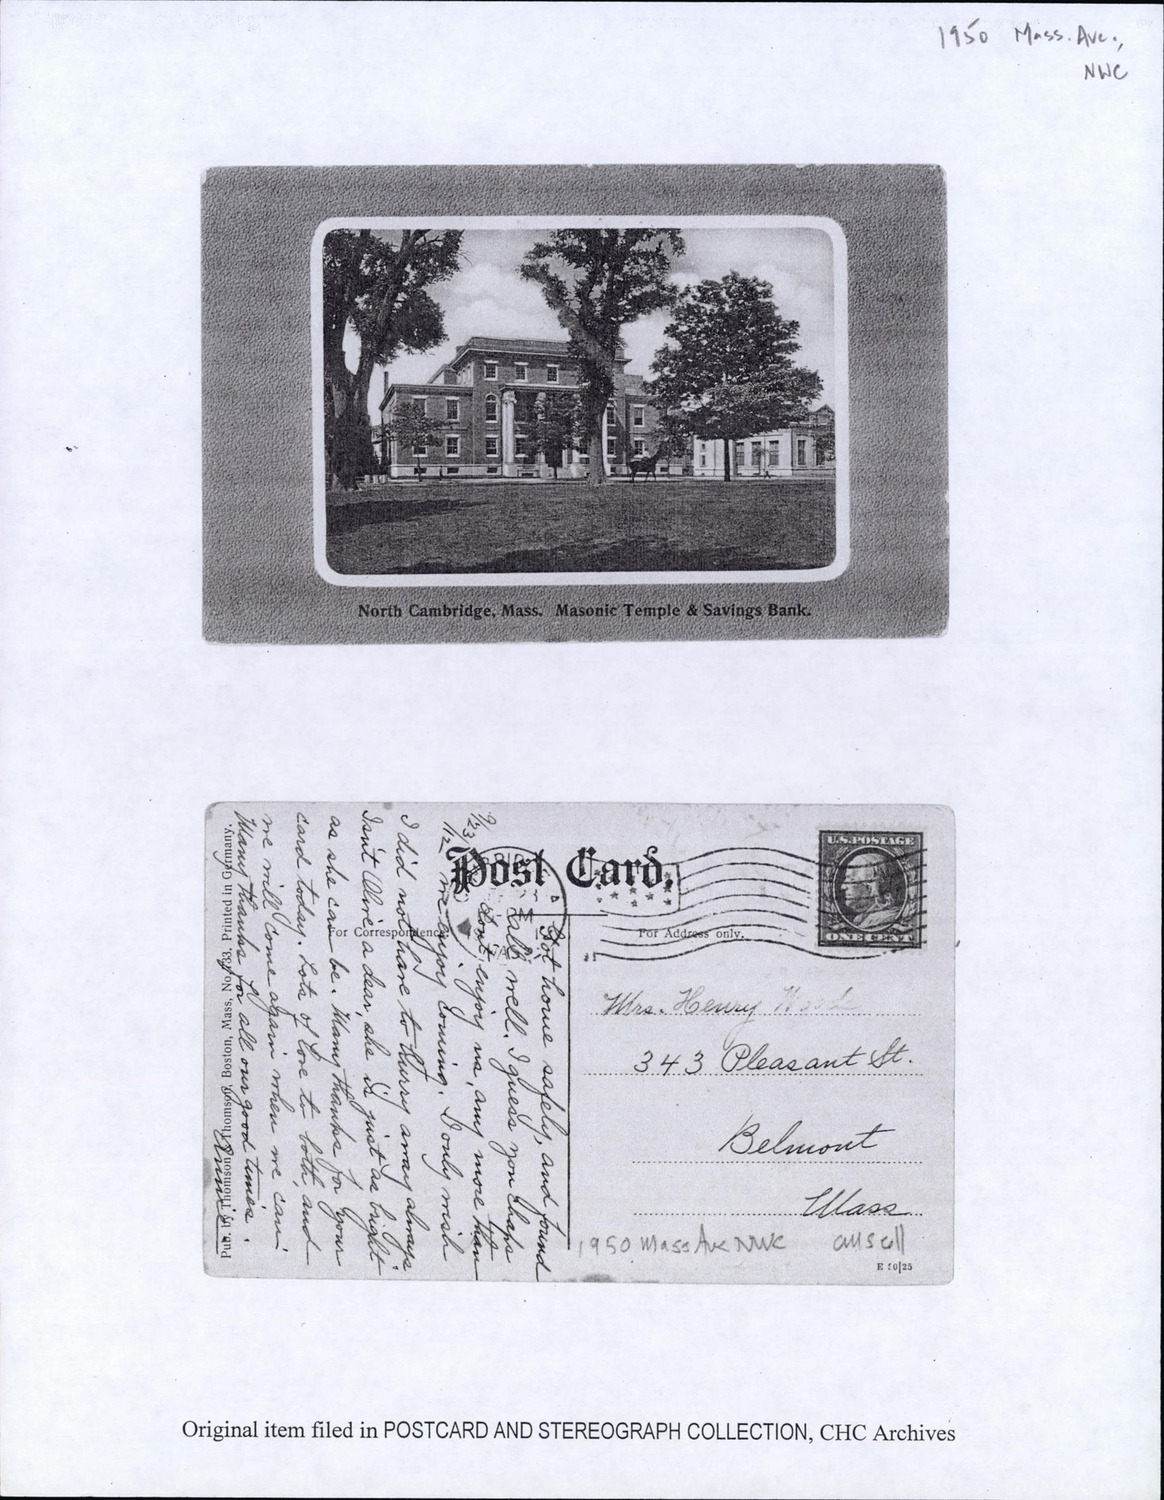 1950 Mass. Ave.,
NWC
North Cambridge, Mass. Masonic Temple & Savings Bank.
Post Card.
For Correspondence
For Address only.
U.S. POSTAGE
ONE CENT
Mrs. Henry Wood
343 Pleasant St.
Belmont
Mass
1950 Mass Ave NWC
E 10|25
Got home safely, and found
Ralph well. I guess you chaps
don't enjoy us, any more than
we enjoy coming. I only wish
I did not have to hurry away always
Isn't Olive a dear, she is just as bright
as she can be. Many thanks for your
card today. Lots of love to both, and
we will come again when we can
Many thanks for all our good times.
Pub. by Thomson & Thomson, Boston, Mass, No. 733 Printed in Germany.
Original item filed in POSTCARD AND STEREOGRAPH COLLECTION, CHC Archives